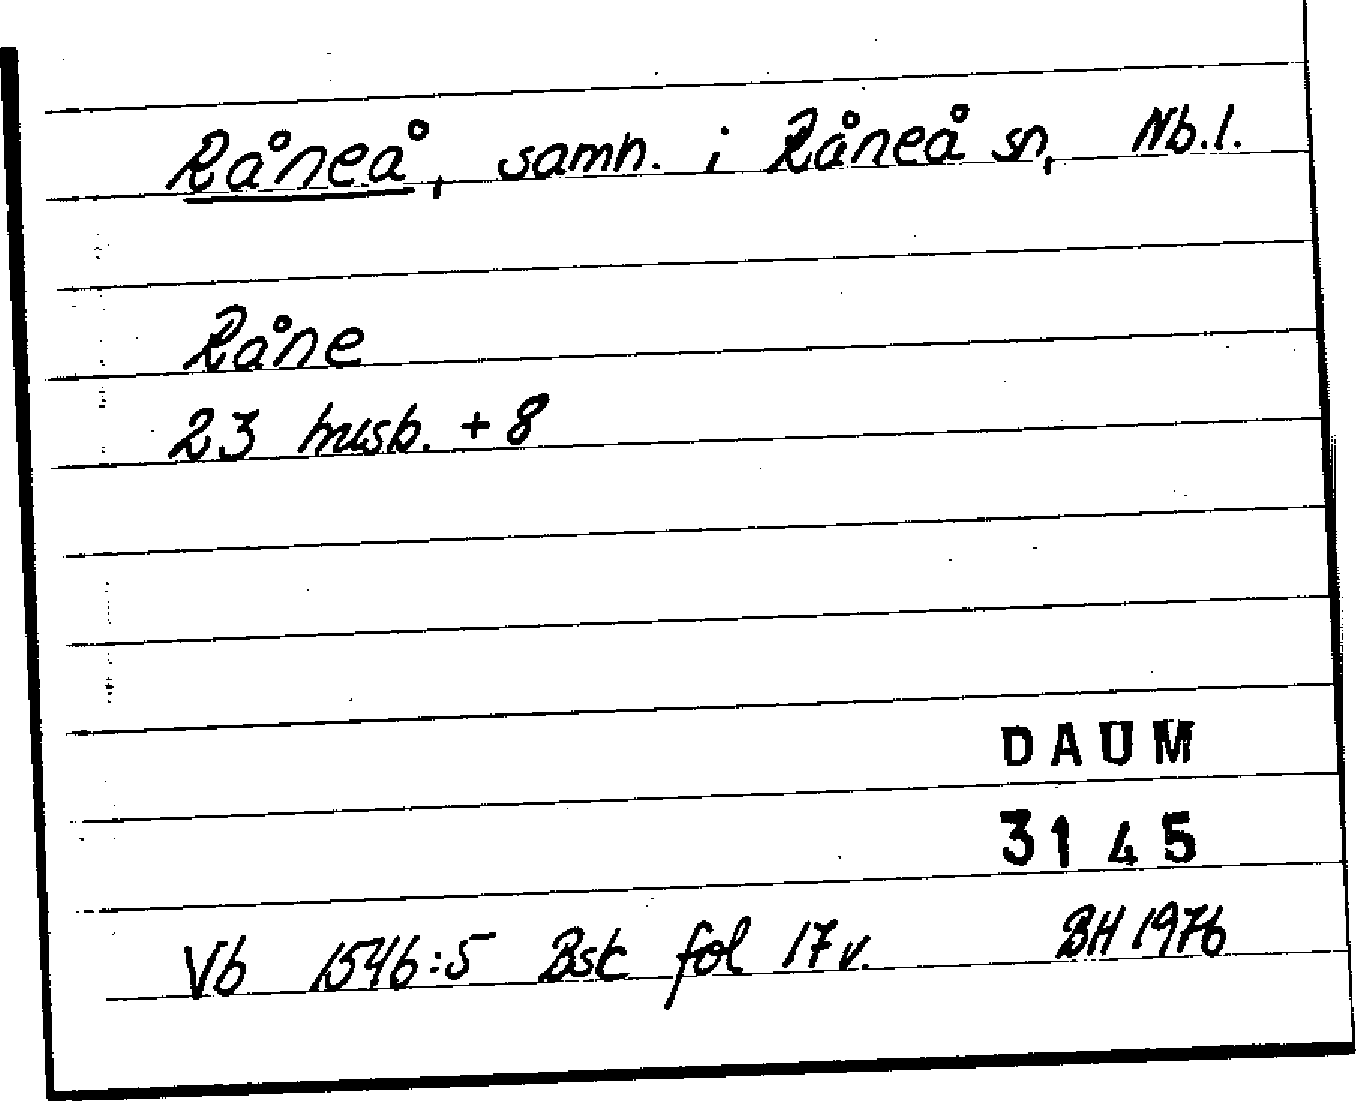 Råneå, samh. i Råneå sn, Nb.l.
Råne
23 husb. + 8
DAUM
3145
Vb 1546:5 Bsk fol 17v. BH 1976